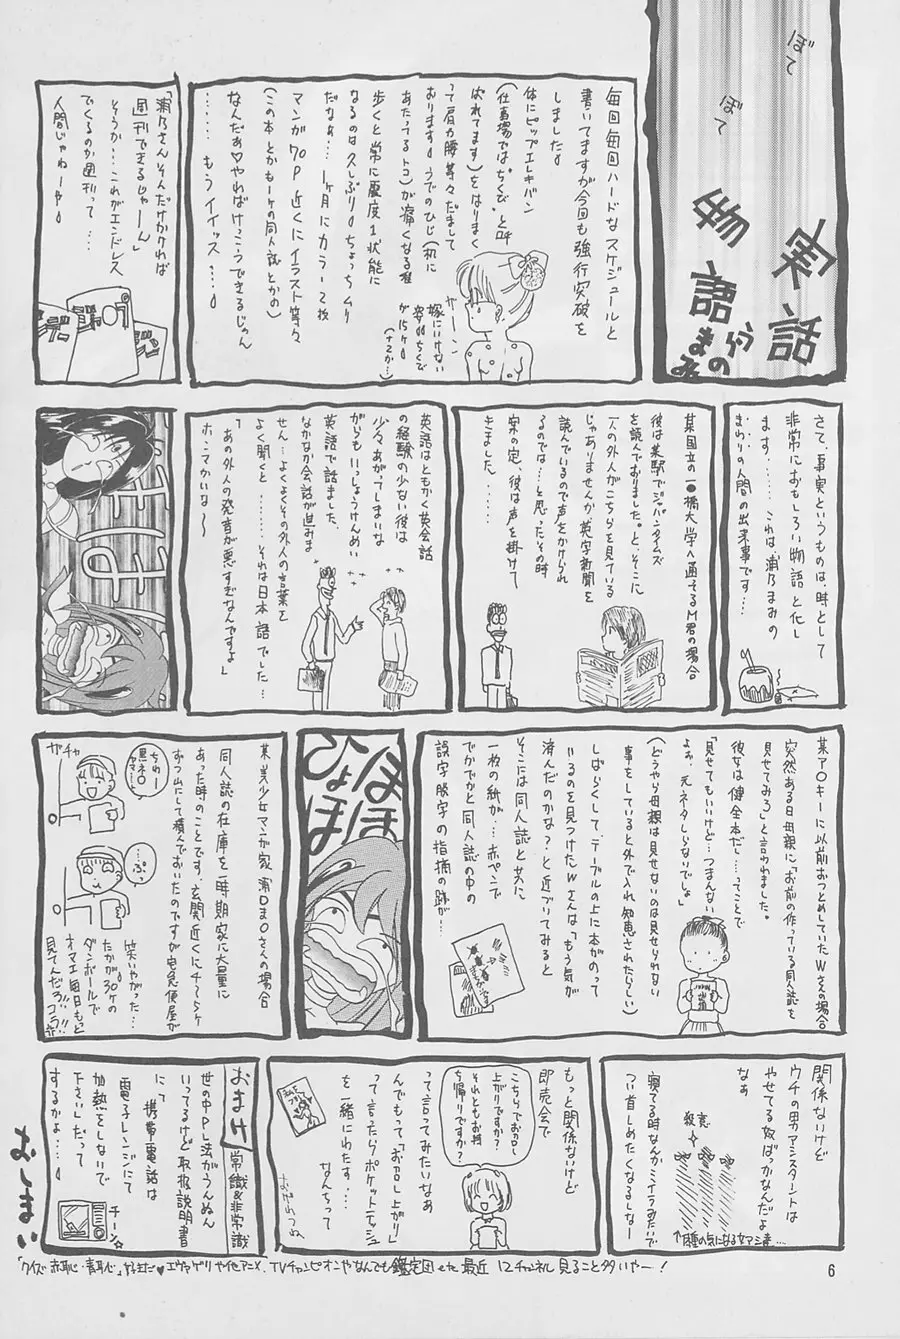 ぼて
ぼて
実話
物語
うらの
まみ
毎回毎回ハードなスケジュールと
書いてますが今回も強行突破を
しました
体にピップエレキバン
(仕事場では“ちくび”と呼
ばれてます)をはりまく
って肩力腰等々だまして
おります うでのひじ(机に
あたってるトコ)が痛くなる程
歩くと常に震度1状態に
なるのは久しぶり ちょっちムリ
だなぁ…1ヶ月にカラー2枚
マンガ70P近くにイラスト等々
(この本とかもーケの同人誌とかの)
なんだぁ♡やればけっこうできるじゃん
……もうイイッス…
ガーン
嫁にいけない
姿 ちくびで
が15ヶ
(+2か…)
「浦乃さんそんだけかければ
週刊できるじゃーん」
そうか…これがエンドレス
でくるのか週刊って…
人間じゃねーや
さて事実というものは、時として
非常におもしろい物語と化し
ます……これは浦乃まみの
まわりの人間の出来事です…
某国立の一●橋大学へ通ってるM君の場合
彼は某駅でジャパンタイムズ
を読んでおりました。と、そこに
一人の外人がこちらを見ている
じゃありませんか英字新聞を
読んでいるので声をかけられ
るのでは…と思ったその時
案の定、彼は声を掛けて
きました……
英語はともかく英会話
の経験の少ない彼は
少々あがってしまいな
がらもいっしょうけんめい
英語で話ました、
なかなか会話が進みま
せん…よくよくその外人の言葉を
よく聞くと……それは日本語でした…
「あの外人の発音が悪すぎなんですよ」
ホンマかいな〜
某アOキーに以前おつとめしていたWさんの場合
突然ある日母親に「お前の作っている同人誌を
見せてみろ」と言われました。
彼女は健全本だし…ってことで
「見せてもいいけど…つまんない
よぉ、元ネタしらないでしょ」
(どうやら母親は見せないのは見せられない
事をしていると外で入れ知恵されたらしい)
しばらくして、テーブルの上に本がのって
いるのを見つけたWさんは「もう気が
済んだのかな?」と近づいてみると
そこには同人誌と共に
一枚の紙が…赤ペンで
でかでかと同人誌の中の
誤字脱字の指摘の跡が…
ほほ
ひょほ
某、美少女マンガ家 浦Oま○さんの場合
同人誌の在庫を一時期家に大量に
あった時のことです。玄関近くにチ〜らケ
ずつ山にして積んでおいたのですが宅急便屋が
ガチャ
ちわー
黒ネO
ヤマトー
…ぷ
笑いやがった…
たかが30ヶの
ダンボールで
オマエ毎日もっと
見てんだろ!!コラ!!
関係ないけど
ウチの男アシスタントは
やせてる奴ばっかなんだよ
なぁ
殺意
寝てる時なんかミイラみたいで
つい首しめたくなるしなー
もっと関係ないけど
即売会で
「こちらでお召し
上がりですか?
それともお持
ち帰りですか?」
って言ってみたいなぁ
んでもって「お召し上がり」
って言ったらポケットティッシュ
を一緒にわたす…
なんちって
おまけ
常識&非常識
世の中PL法がうんぬん
いってるけど取扱説明書
に 携帯電話は
電子レンジにて
加熱をしないで
下さいしだって
するかよ…
チーン☆
おしまい
6